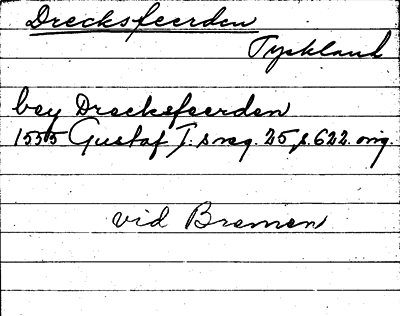 Drecksfeerden
Tyskland
bey Drecksfeerden
1555 Gustaf I.s reg. 25, s. 622. orig.
vid Bremen